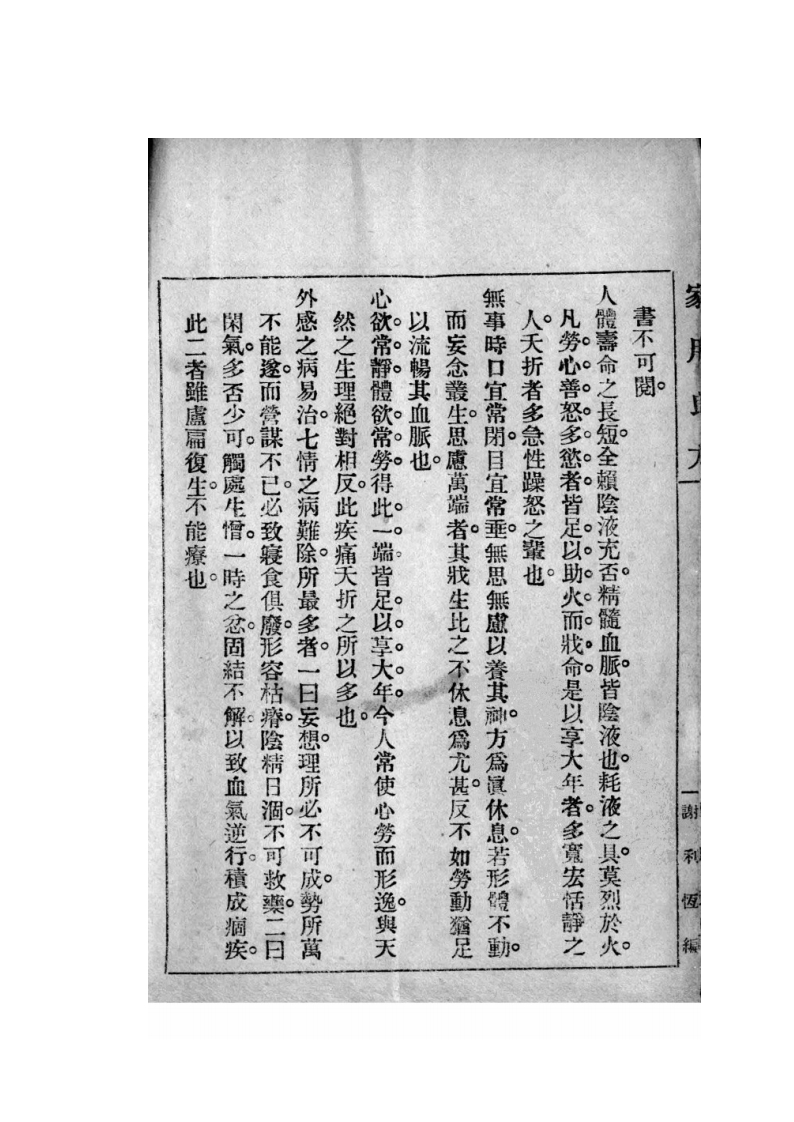 一 謝利恆編
書不可閱。
人體壽命之長短。全賴陰液充否。精髓血脈。皆陰液也。耗液之具。莫烈於火。
凡勞心善怒多慾者。皆足以助火而戕命。是以享大年者。多寬宏恬靜之
人。夭折者多急性躁怒之輩也。
無事時口宜常閉。目宜常垂。無思無慮以養其神。方為眞休息。若形體不動。
而妄念叢生。思慮萬端者。其戕生比之不休息爲尤甚。反不如勞動猶足
以流暢其血脈也。
心欲常靜。體欲常勞。得此一端。皆足以享大年。今人常使心勞而形逸。與天
然之生理絕對相反。此疾痛夭折之所以多也。
外感之病易治。七情之病難除。所最多者。一曰妄想。理所必不可成。勢所萬
不能遂。而營謀不已。必致寢食俱廢。形容枯瘠。陰精日涸。不可救藥。二曰
閑氣。多否少可。觸處生憎。一時之忿。固結不解。以致血氣逆行。積成痼疾。
此二者雖盧扁復生。不能療也。